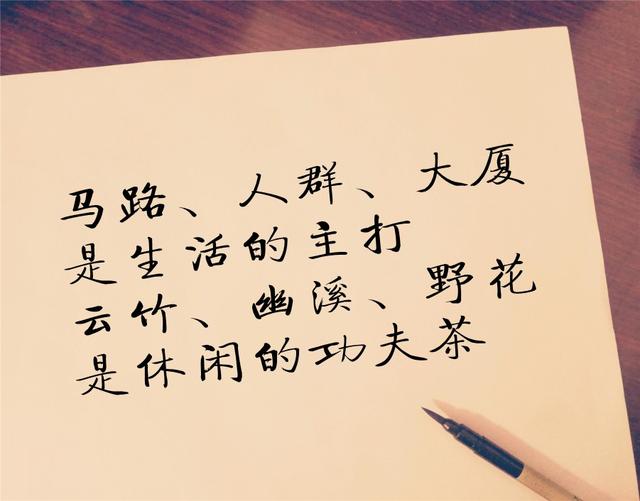 马路、人群、大厦
是生活的主打
云竹、幽溪、野花
是休闲的功夫茶